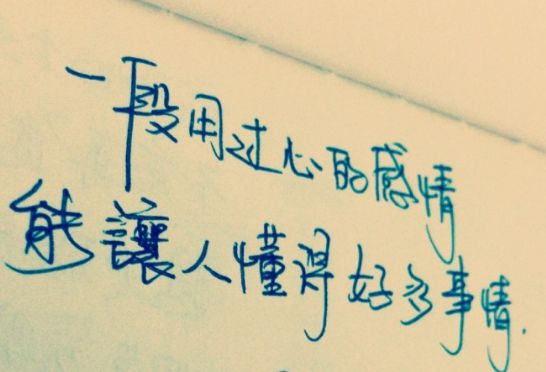 一段用过心的感情
能讓人懂得好多事情.